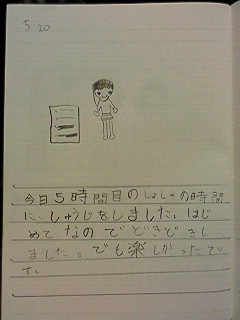 5.20
今日5時間目のしょしゃの時間
に、しゅうじをしました。はじ
めてなのでどきどきし
ました。でも楽しかったで
す。